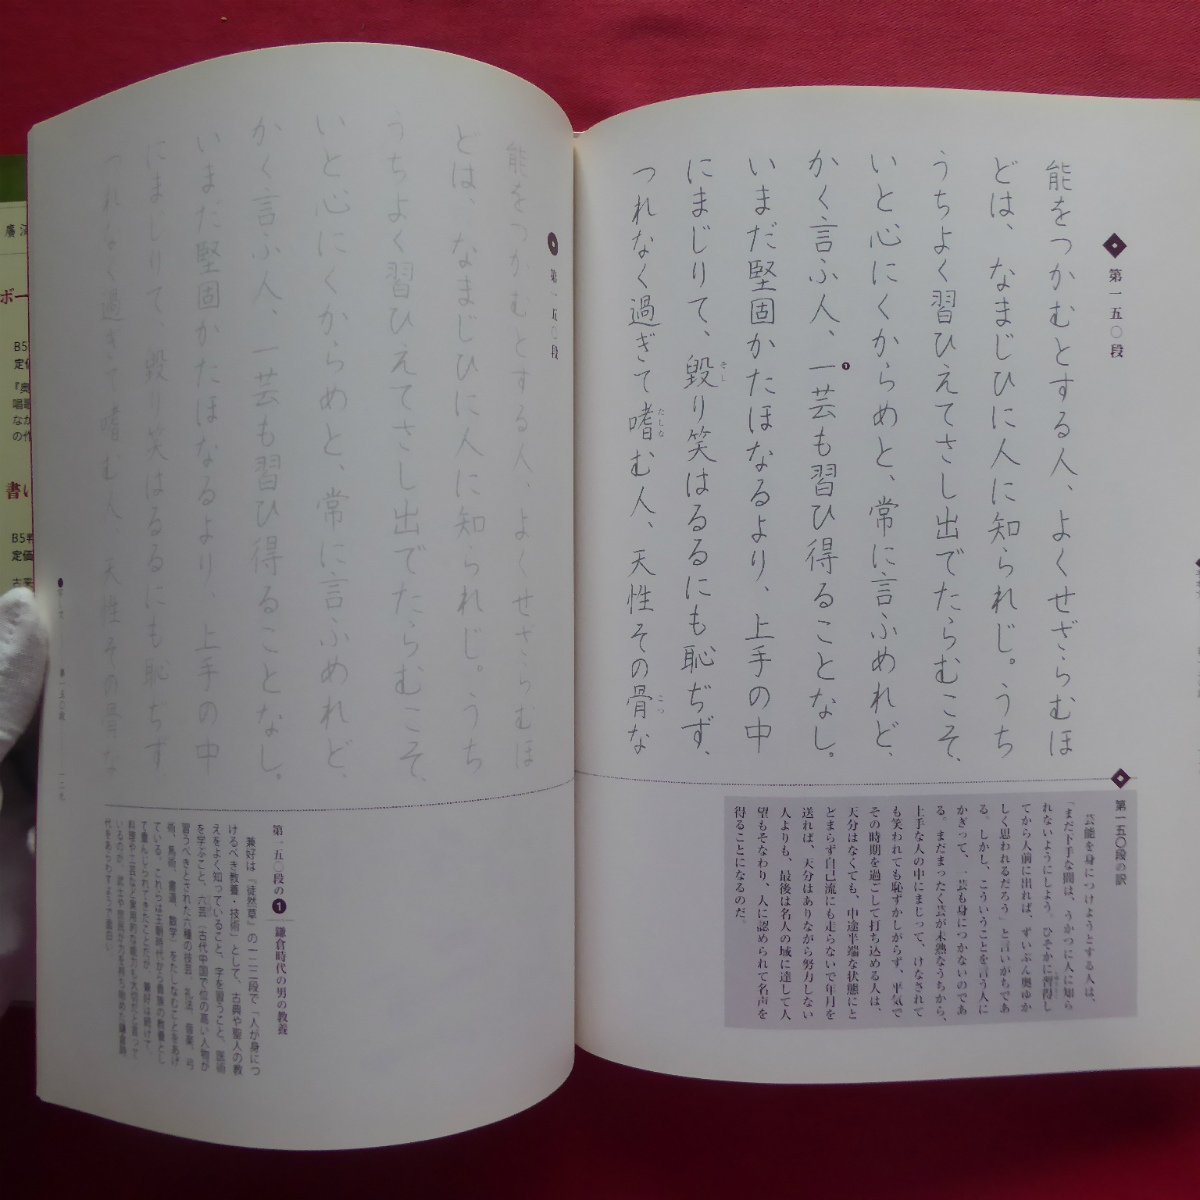 第一五〇段
能をつかむとする人、よくせざらむほ
どは、なまじひに人に知られじ。うち
うちよく習ひえてさし出でたらむこそ、
いと心にくからめと、常に言ふめれど、
かく言ふ人、一芸も習ひ得ることなし。
❶
いまだ堅固かたほなるより、上手の中
にまじりて、毀り笑はるるにも恥ぢず、
そし
つれなく過ぎて嗜む人、天性その骨な
たしな
こつ
第一五〇段の訳
芸能を身につけようとする人は、
「まだ下手な間は、うかつに人に知ら
れないようにしよう。ひそかに習得し
てから人前に出れば、ずいぶん奥ゆか
しく思われるだろう」と言いがちであ
る。しかし、こういうことを言う人に
かぎって、一芸も身につかないのであ
る。まだまったく芸が未熟なうちから、
上手な人の中にまじって、けなされて
も笑われても恥ずかしがらず、平気で
その時期を過ごして打ち込める人は、
天分はなくても、中途半端な状態にと
どまらず自己流にも走らないで年月を
送れば、天分はありながら努力しない
人よりも、最後は名人の域に達して人
望もそなわり、人に認められて名声を
得ることになるのだ。
第一五〇段
能をつかむとする人、よくせざらむほ
どは、なまじひに人に知られじ。うち
うちよく習ひえてさし出でたらむこそ、
いと心にくからめと、常に言ふめれど、
かく言ふ人、一芸も習ひ得ることなし。
いまだ堅固かたほなるより、上手の中
にまじりて、毀り笑はるるにも恥ぢず、
つれなく過ぎて嗜む人、天性その骨な
第一五〇段の❶ 鎌倉時代の男の教養
兼好は『徒然草』の一二二段で「人が身につ
けるべき教養・技術」として、古典や聖人の教
えをよく知っていること、字を習うこと、医術
を学ぶこと、六芸（古代中国で位の高い人物が
習うべきとされた六種の技芸 礼法、音楽、弓
術、馬術、書道、数学）をたしなむことをあげ
ている。これらは王朝時代から貴族の教養とし
て重んじられてきたことだが、兼好は続けて、
料理や工芸など実用的な能力も大切だと言って
いるのが、武士や庶民が力を持ち始めた鎌倉時
代をあらわすようで面白い。
第一五〇段
一二九
廣済
ボー
B5
定価
書い
B5判
定価